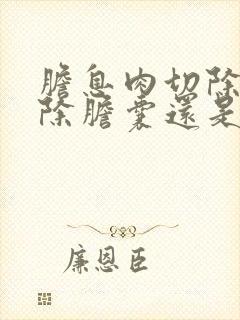 膽息肉切除
除膽囊還是
廉恩臣